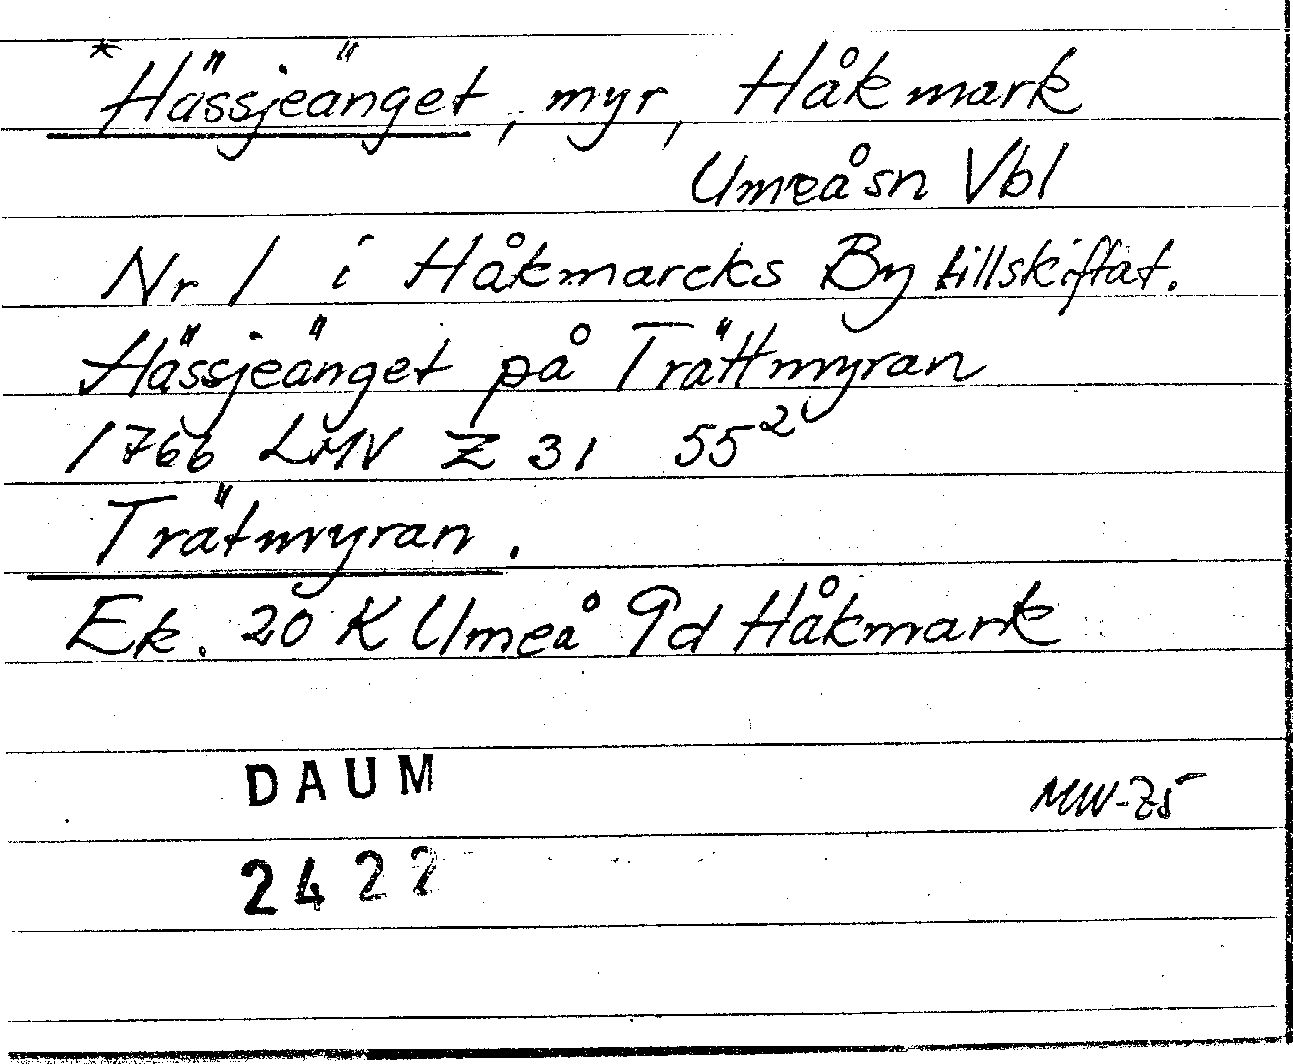 *Hässjeänget, myr, Håkmark
Umeåsn Vbl
Nr 1 i Håkmarcks By tillskiftat.
Hässjeänget på Trättmyran
1766 LMV Z 31 55²
Trätmyran.
Ek. 20 K Umeå 9d Håkmark
DAUM
MW-75
2422